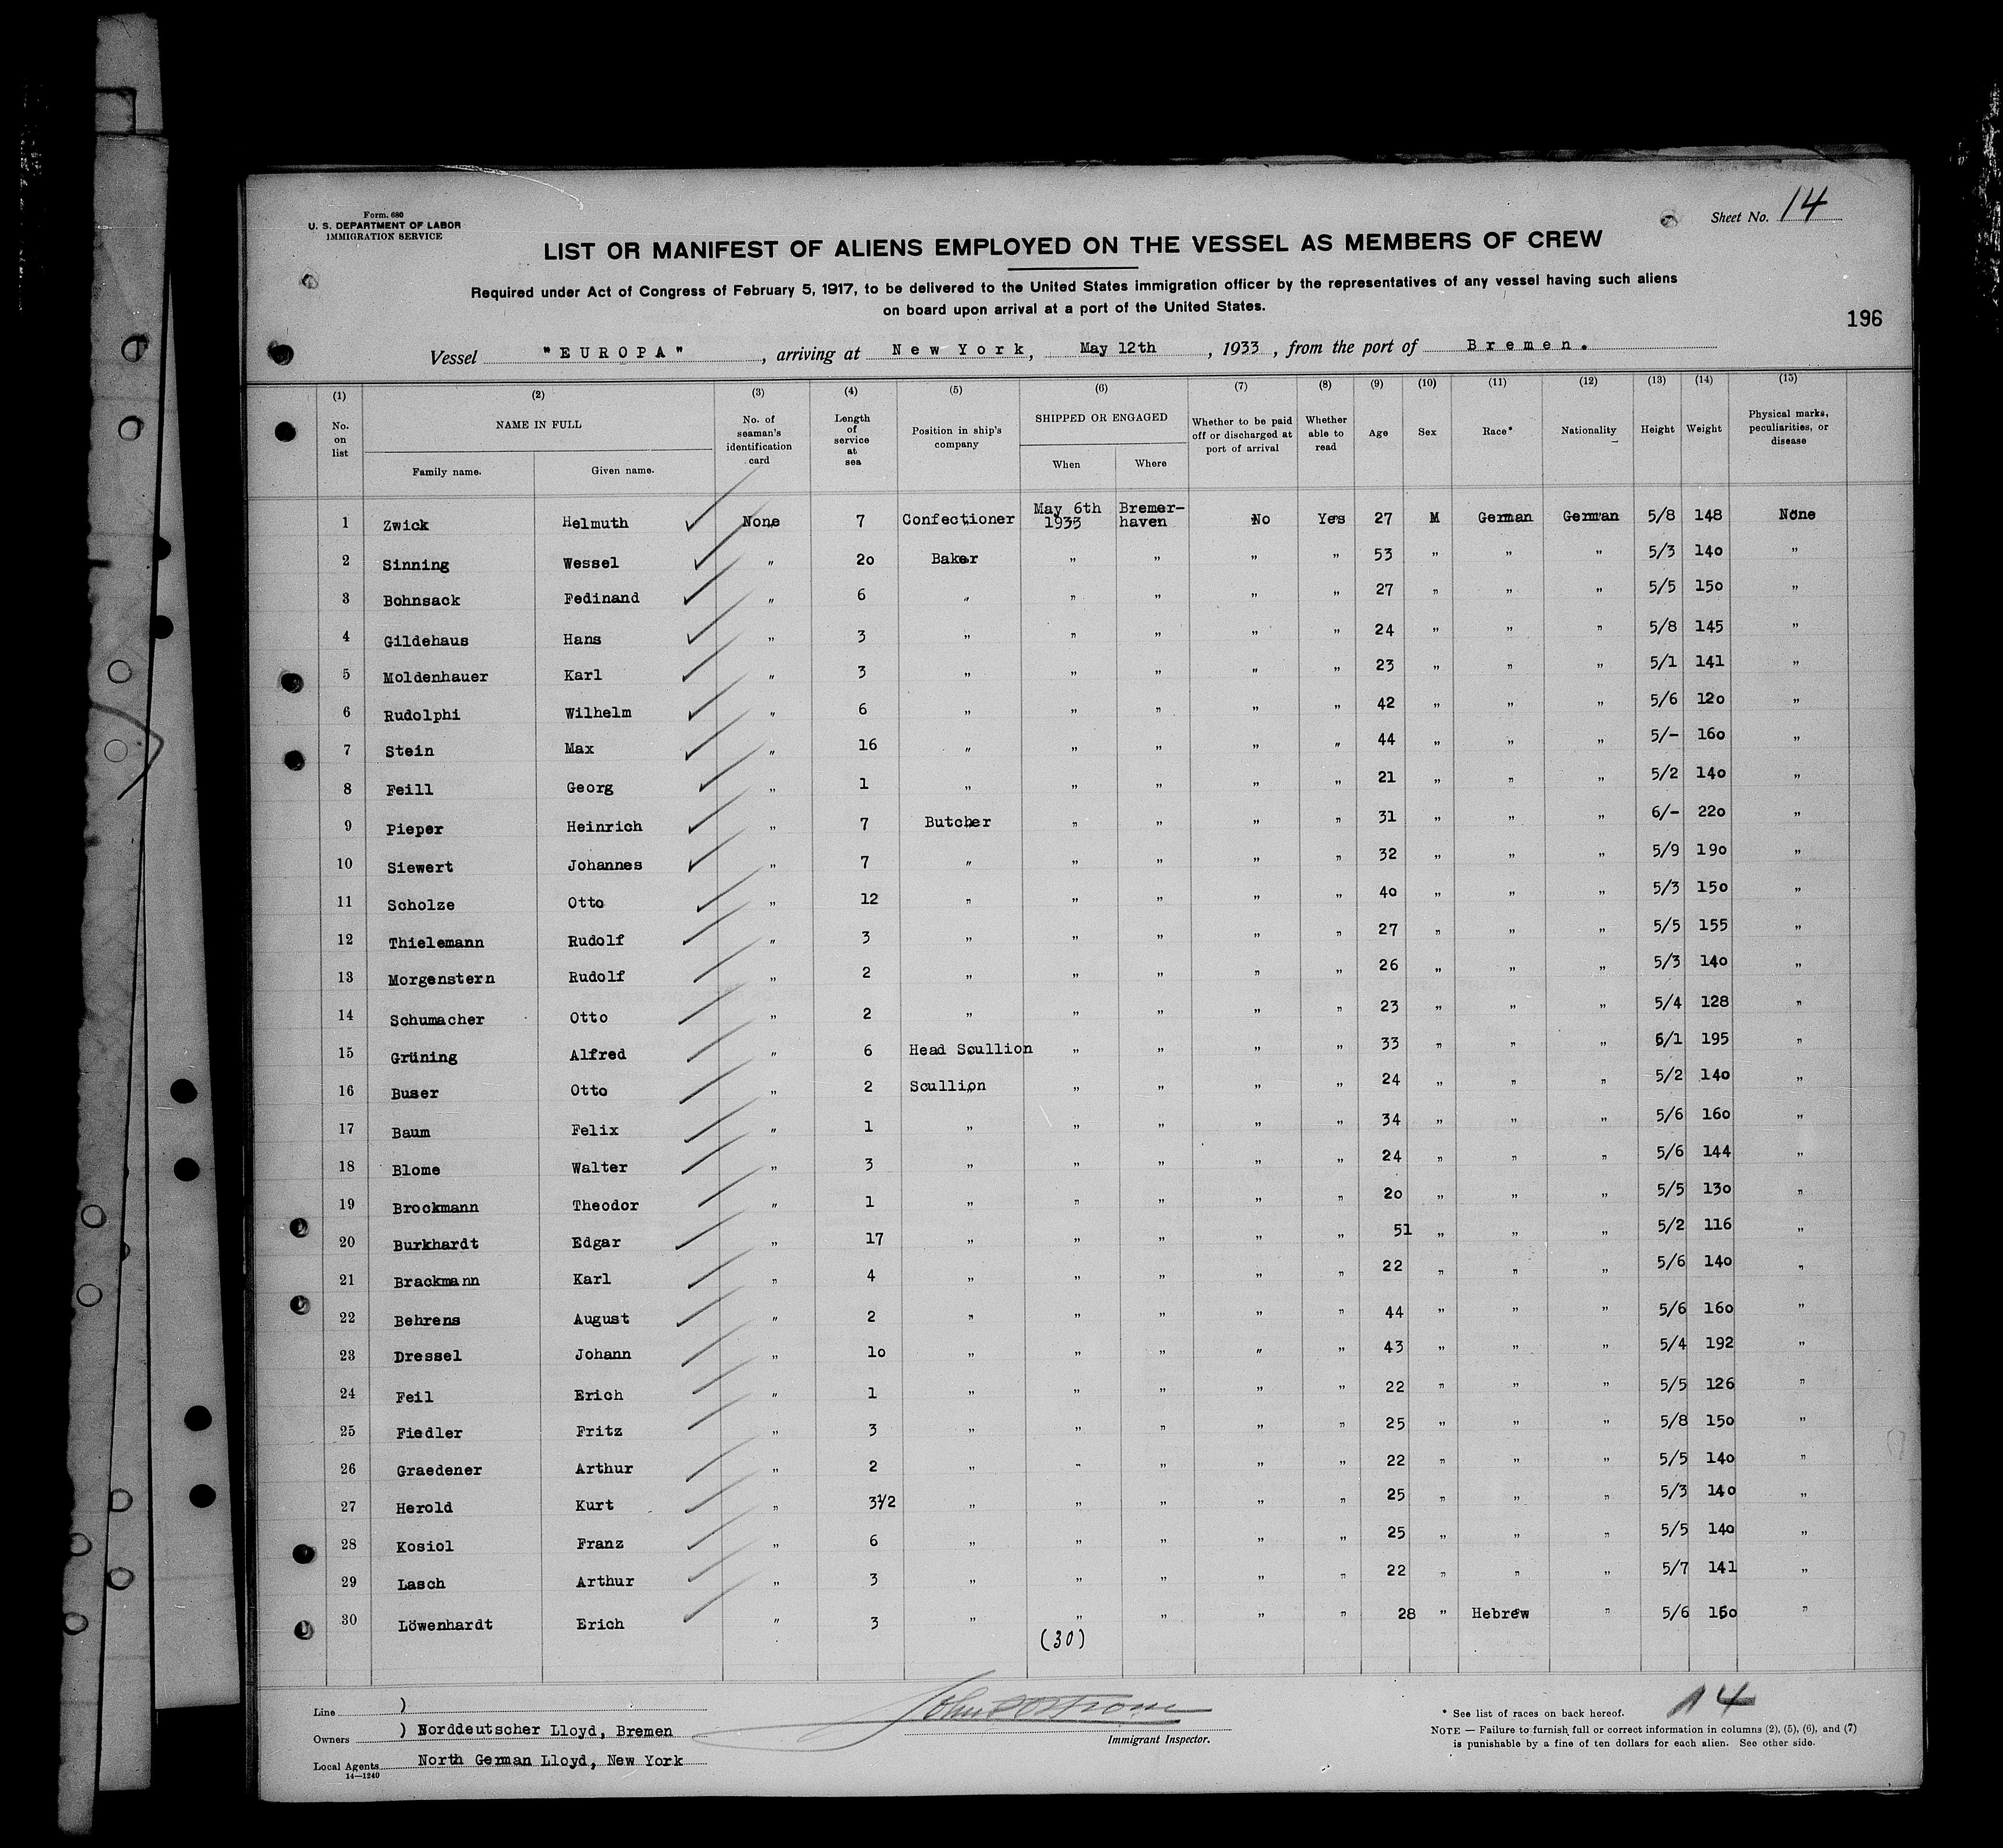 Form. 680
U. S. DEPARTMENT OF LABOR
IMMIGRATION SERVICE
Sheet No. 14
LIST OR MANIFEST OF ALIENS EMPLOYED ON THE VESSEL AS MEMBERS OF CREW
Required under Act of Congress of February 5, 1917, to be delivered to the United States immigration officer by the representatives of any vessel having such aliens
on board upon arrival at a port of the United States.
196
Vessel "EUROPA", arriving at New York, May 12th, 1933, from the port of Bremen.
(1) (2) (3) (4) (5) (6) (7) (8) (9) (10) (11) (12) (13) (14) (15)
No. on list NAME IN FULL Family name. Given name. No. of seaman's identification card Length of service at sea Position in ship's company SHIPPED OR ENGAGED When Where Whether to be paid off or discharged at port of arrival Whether able to read Age Sex Race* Nationality Height Weight Physical marks, peculiarities, or disease
1 Zwick Helmuth None 7 Confectioner May 6th 1933 Bremer-haven No Yes 27 M German German 5/8 148 None
2 Sinning Wessel " 20 Baker " " " " 53 " " " 5/3 140 "
3 Bohnsack Fedinand " 6 " " " " " 27 " " " 5/5 150 "
4 Gildehaus Hans " 3 " " " " " 24 " " " 5/8 145 "
5 Moldenhauer Karl " 3 " " " " " 23 " " " 5/1 141 "
6 Rudolphi Wilhelm " 6 " " " " " 42 " " " 5/6 120 "
7 Stein Max " 16 " " " " " 44 " " " 5/- 160 "
8 Feill Georg " 1 " " " " " 21 " " " 5/2 140 "
9 Pieper Heinrich " 7 Butcher " " " " 31 " " " 6/- 220 "
10 Siewert Johannes " 7 " " " " " 32 " " " 5/9 190 "
11 Scholze Otto " 12 " " " " " 40 " " " 5/3 150 "
12 Thielemann Rudolf " 3 " " " " " 27 " " " 5/5 155 "
13 Morgenstern Rudolf " 2 " " " " " 26 " " " 5/3 140 "
14 Schumacher Otto " 2 " " " " " 23 " " " 5/4 128 "
15 Grüning Alfred " 6 Head Scullion " " " " 33 " " " 6/1 195 "
16 Buser Otto " 2 Scullion " " " " 24 " " " 5/2 140 "
17 Baum Felix " 1 " " " " " 34 " " " 5/6 160 "
18 Blome Walter " 3 " " " " " 24 " " " 5/6 144 "
19 Brockmann Theodor " 1 " " " " " 20 " " " 5/5 130 "
20 Burkhardt Edgar " 17 " " " " " 51 " " " 5/2 116 "
21 Brackmann Karl " 4 " " " " " 22 " " " 5/6 140 "
22 Behrens August " 2 " " " " " 44 " " " 5/6 160 "
23 Dressel Johann " 10 " " " " " 43 " " " 5/4 192 "
24 Feil Erich " 1 " " " " " 22 " " " 5/5 126 "
25 Fiedler Fritz " 3 " " " " " 25 " " " 5/8 150 "
26 Graedener Arthur " 2 " " " " " 22 " " " 5/5 140 "
27 Herold Kurt " 3½ " " " " " 25 " " " 5/3 140 "
28 Kosiol Franz " 6 " " " " " 25 " " " 5/5 140 "
29 Lasch Arthur " 3 " " " " " 22 " " " 5/7 141 "
30 Löwenhardt Erich " 3 " " " " " 28 " Hebrew " 5/6 "
(30)
14
Line )
Owners ) Norddeutscher Lloyd, Bremen
Local Agents North German Lloyd, New York
14—1240
Immigrant Inspector.
* See list of races on back hereof.
NOTE — Failure to furnish full or correct information in columns (2), (5), (6), and (7)
is punishable by a fine of ten dollars for each alien. See other side.